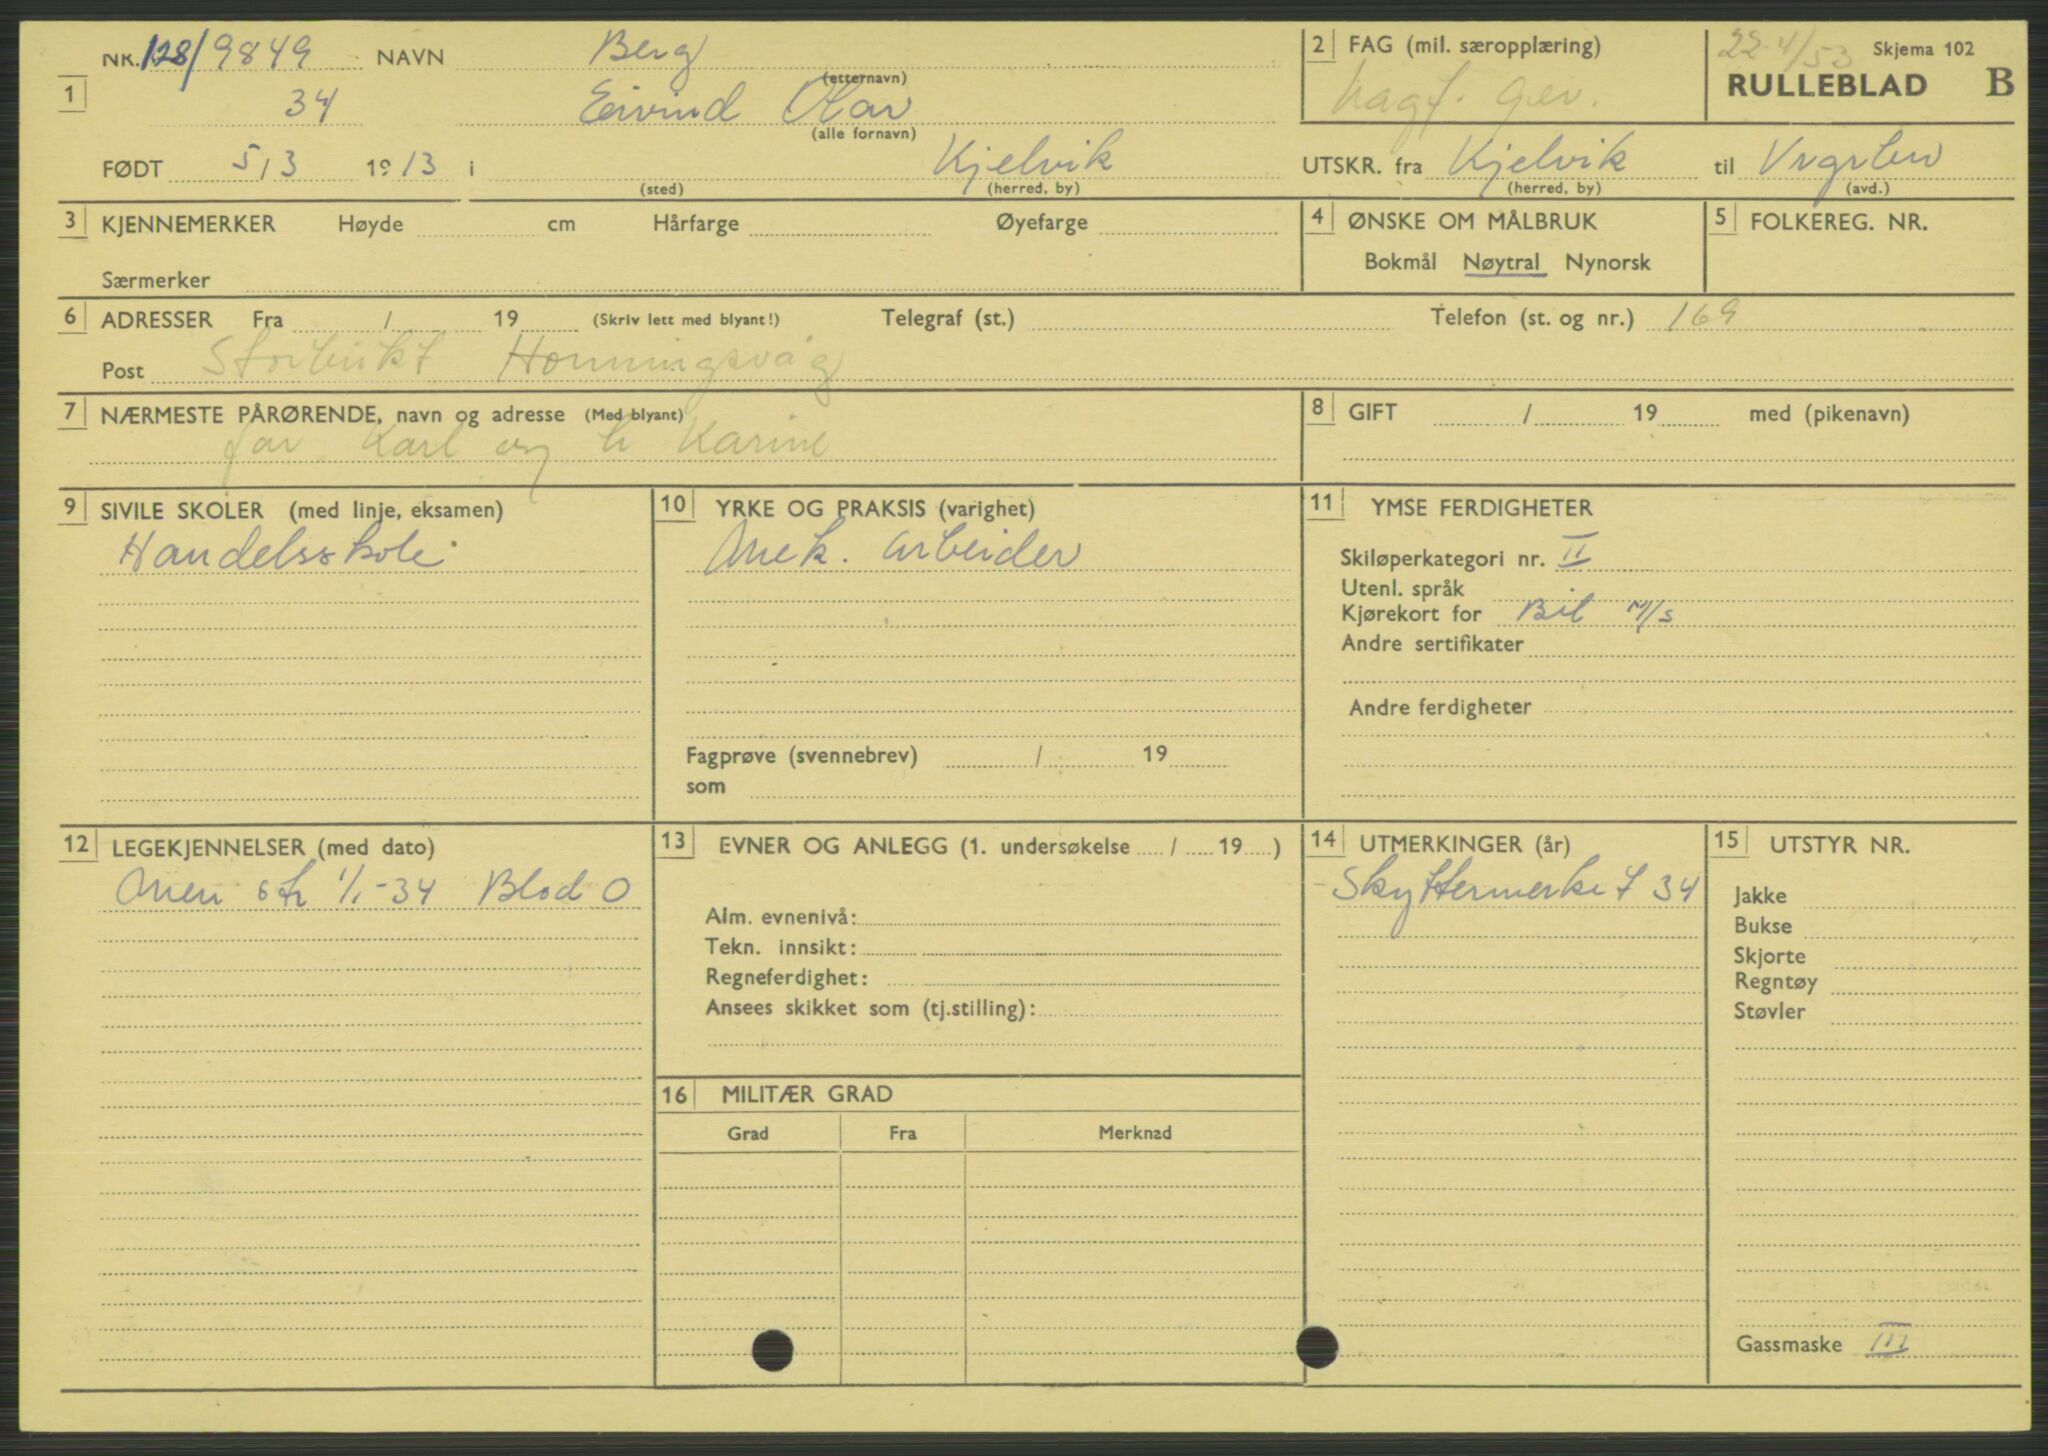 NK. 128/9849 NAVN Berg (etternavn)
1 34 Eivind Olav (alle fornavn)
FØDT 5/3 19 13 i (sted) Kjelvik (herred, by)
2 FAG (mil. særopplæring)
gev.
22.4/53 Skjema 102
RULLEBLAD B
UTSKR. fra Kjelvik (herred, by) til (avd.)
3 KJENNEMERKER Høyde cm Hårfarge Øyefarge
Særmerker
4 ØNSKE OM MÅLBRUK
Bokmål Nøytral Nynorsk
5 FOLKEREG. NR.
6 ADRESSER Fra / 19 (Skriv lett med blyant!) Telegraf (st.) Telefon (st. og nr.) 169
Post Storbukt Honningsvåg
7 NÆRMESTE PÅRØRENDE, navn og adresse (Med blyant)
far Karl og h Karine
8 GIFT / 19 med (pikenavn)
9 SIVILE SKOLER (med linje, eksamen)
Handelsskole
10 YRKE OG PRAKSIS (varighet)
Mek. arbeider
Fagprøve (svennebrev) / 19
som
11 YMSE FERDIGHETER
Skiløperkategori nr. II
Utenl. språk
Kjørekort for Bil M/s
Andre sertifikater
Andre ferdigheter
12 LEGEKJENNELSER (med dato)
1/1-34 Blod O
13 EVNER OG ANLEGG (1. undersøkelse / 19 )
Alm. evnenivå:
Tekn. innsikt:
Regneferdighet:
Ansees skikket som (tj.stilling):
14 UTMERKINGER (år)
Skyttermerket 34
15 UTSTYR NR.
Jakke
Bukse
Skjorte
Regntøy
Støvler
Gassmaske III
16 MILITÆR GRAD
Grad Fra Merknad